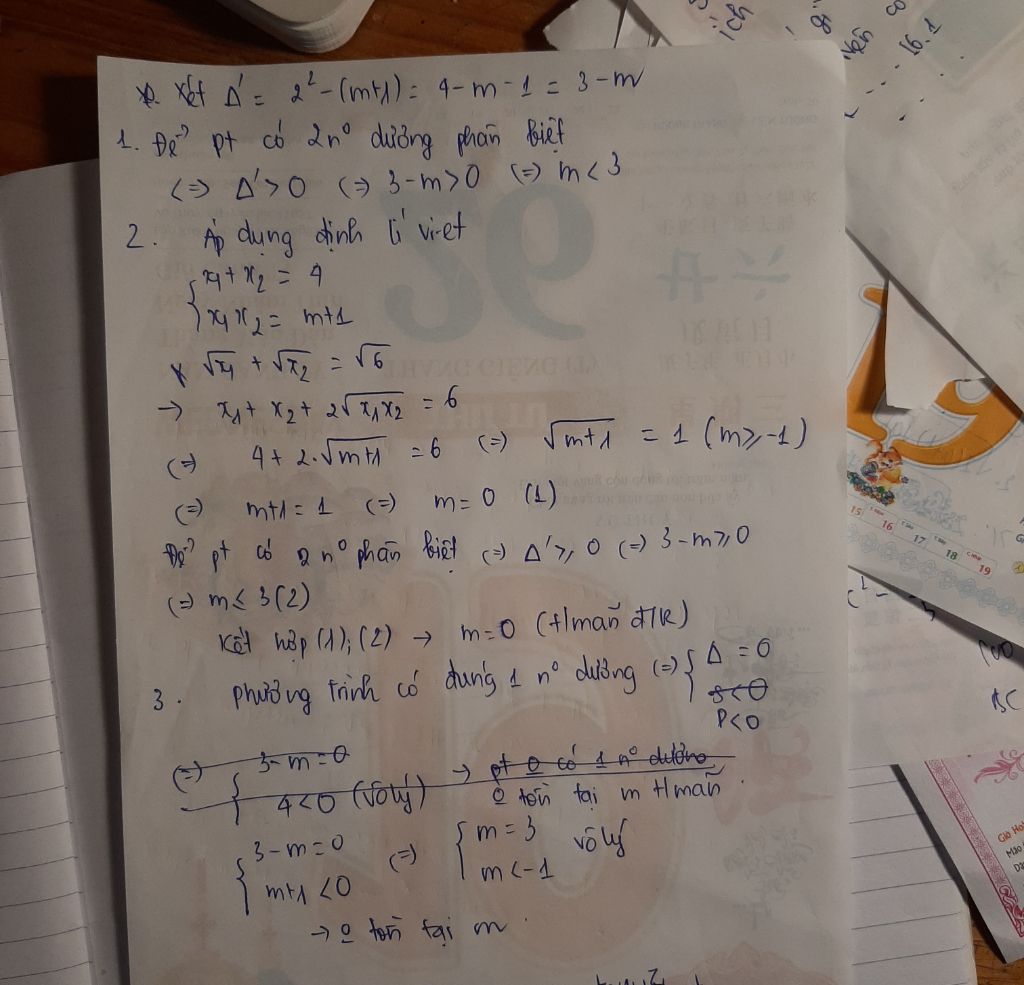 Xét Δ' = 2² - (m+1) = 4 - m - 1 = 3 - m
1. Để pt có 2 n° dương phân biệt
<=> Δ' > 0 <=> 3 - m > 0 <=> m < 3
2. Áp dụng định lí vi-et
{ x₁ + x₂ = 4
x₁x₂ = m+1
* √x₁ + √x₂ = √6
→ x₁ + x₂ + 2√x₁x₂ = 6
<=> 4 + 2.√m+1 = 6 <=> √m+1 = 1 (m ≥ -1)
<=> m+1 = 1 <=> m = 0 (1)
Để pt có 2 n° phân biệt <=> Δ' ≥ 0 <=> 3 - m ≥ 0
<=> m ≤ 3 (2)
Kết hợp (1); (2) → m = 0 (t/mãn đ/k)
3. phương trình có đúng 1 n° dương <=> { Δ = 0
s < 0
P < 0
<=> { 3 - m = 0 → pt 0 có 1 n° dương
4 < 0 (vô lý) 0 tồn tại m t/mãn.
{ 3 - m = 0 <=> { m = 3 vô lý
m+1 < 0 m < -1
→ 0 tồn tại m.
15 16 17 18 19
16.1